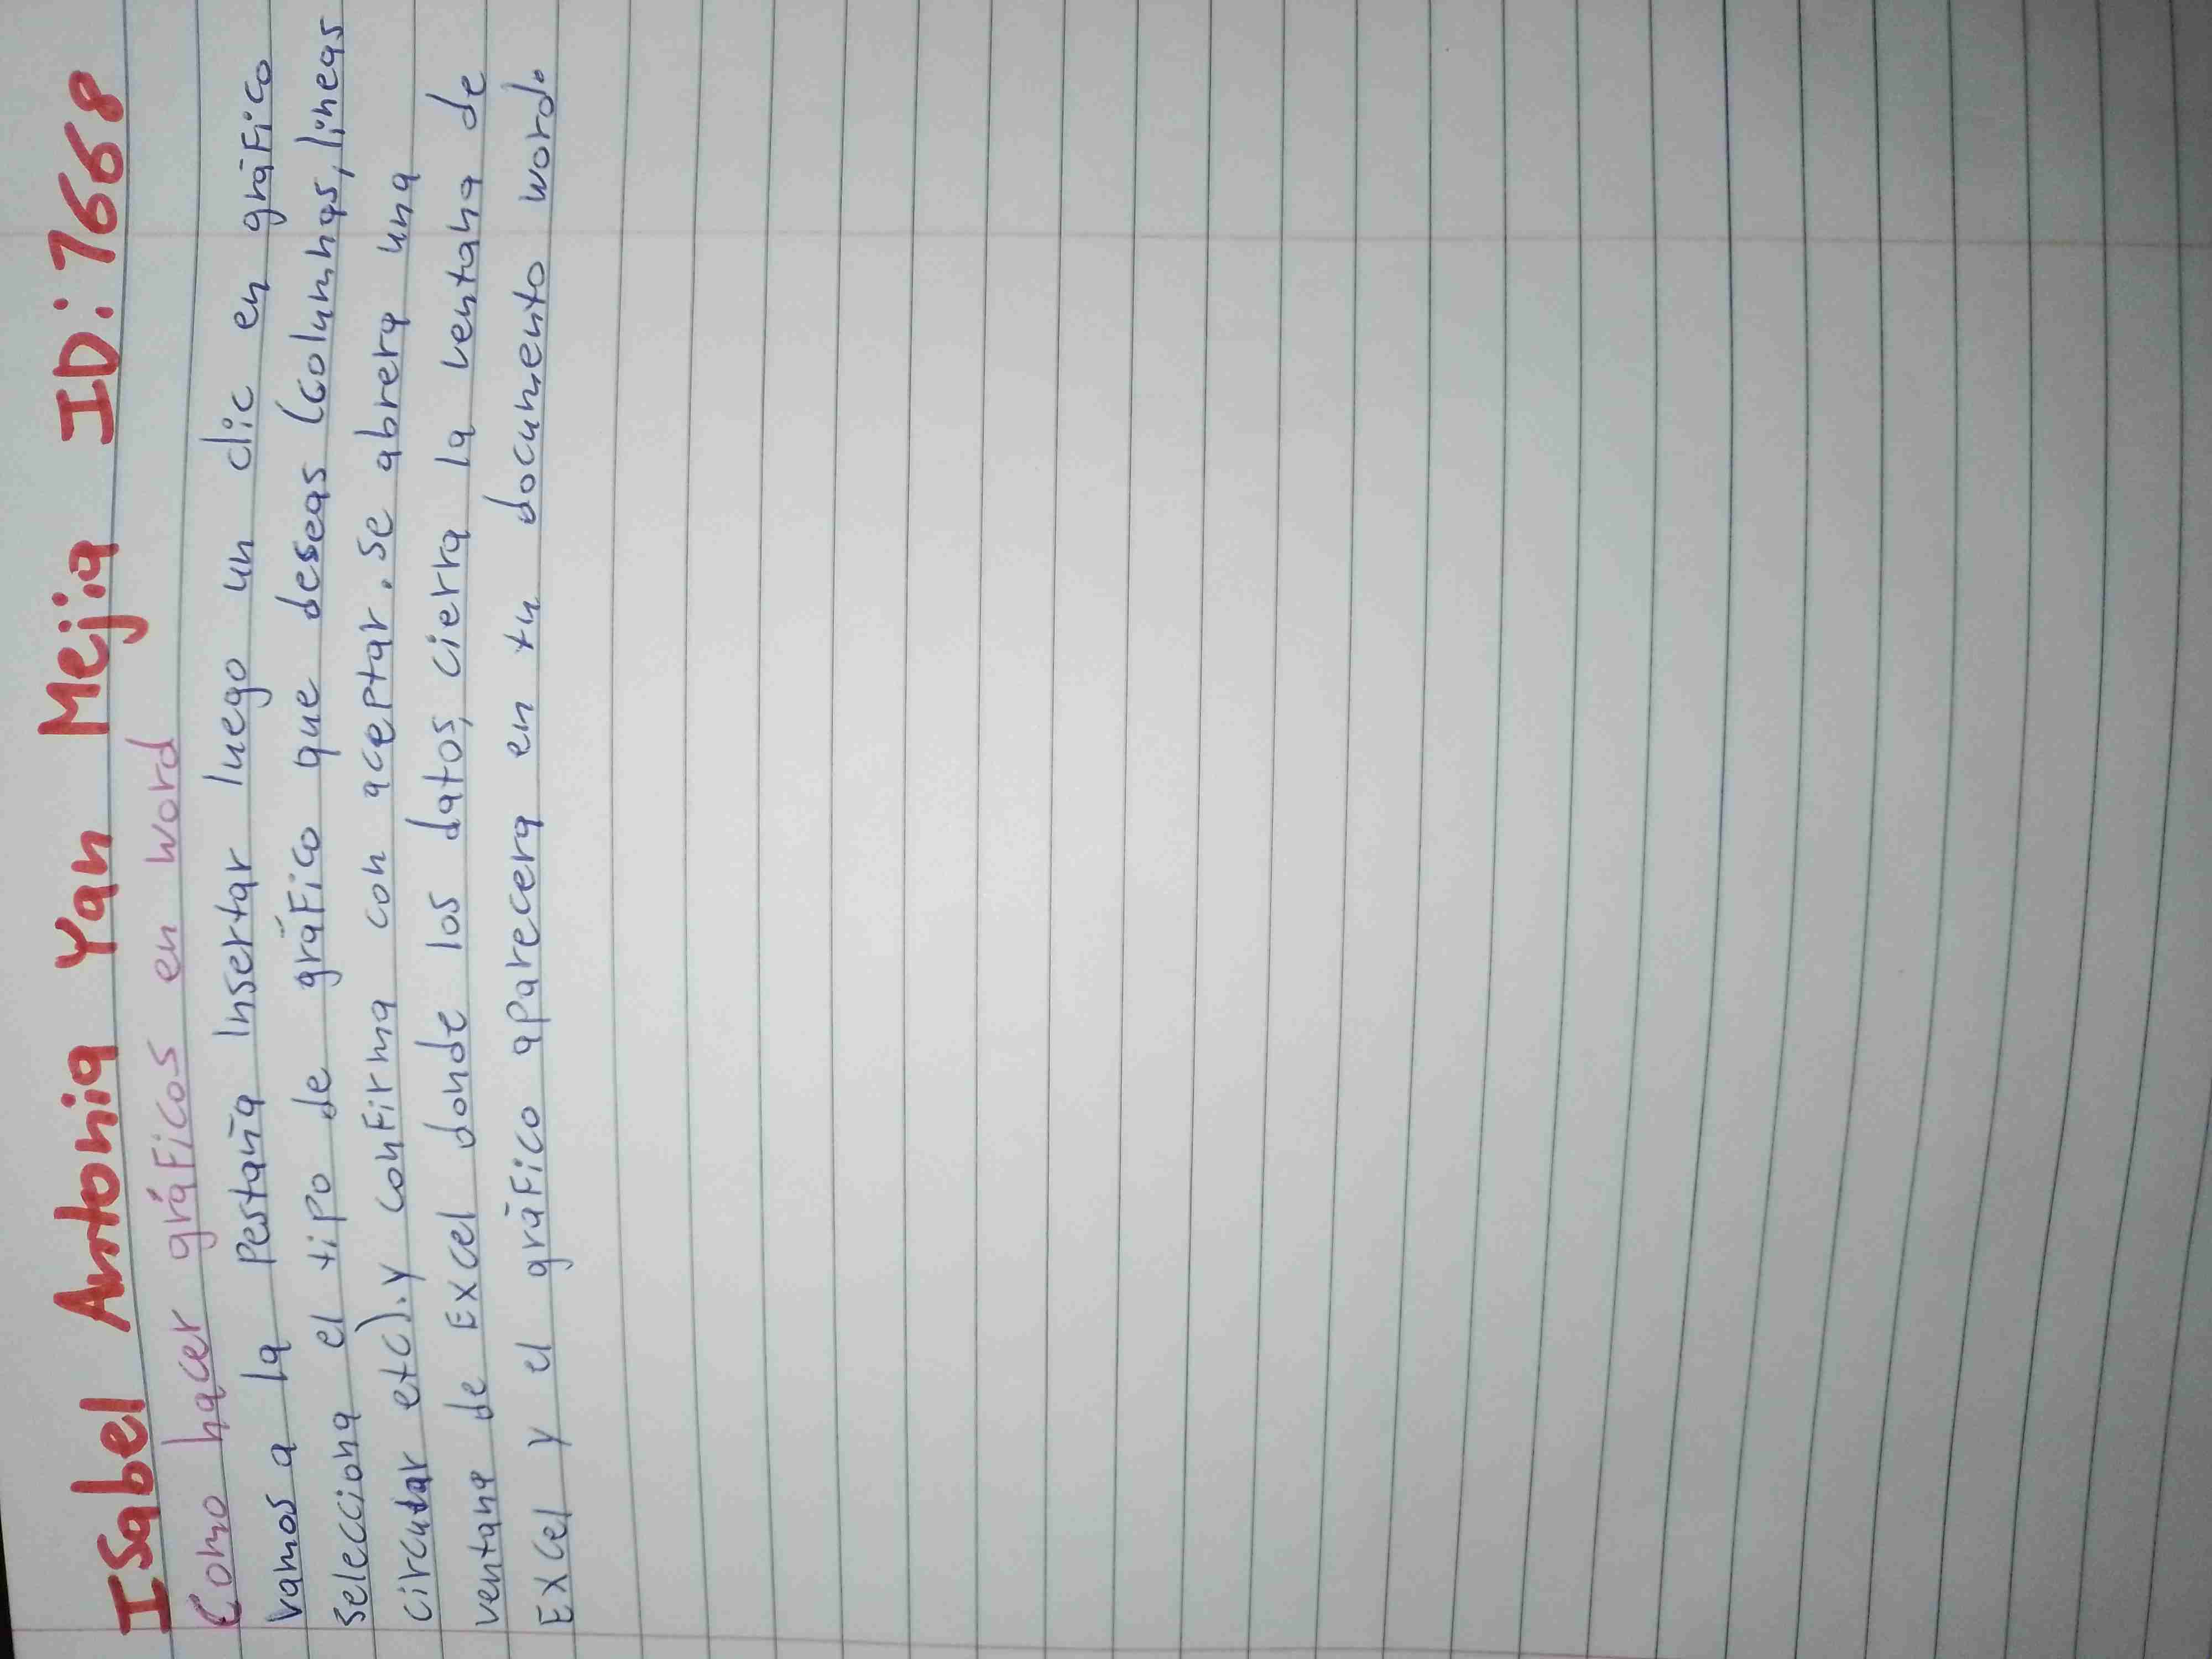 Isabel Antonia Yan Mejia ID: 7668
Como hacer gráficos en word
vamos a la Pestaña Insertar luego un clic en gráfico
selecciona el tipo de gráfico que deseas (columnas, lineas
circular etc). y confirma con aceptar. se abrera una
ventana de Excel donde los datos, cierra la ventana de
Excel y el gráfico aparecera en tu documento word.